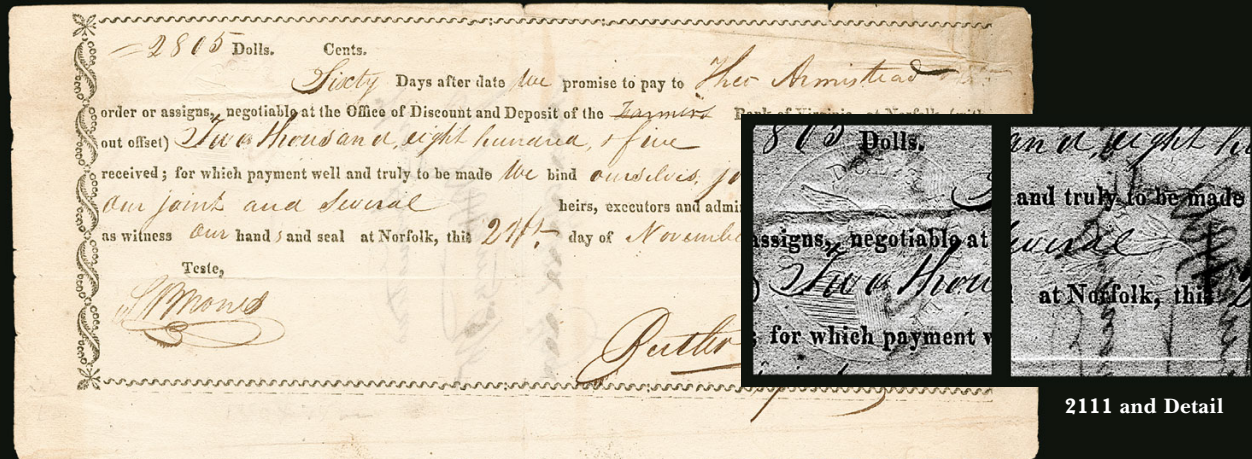 2805 Dolls. Cents.
Sixty Days after date We promise to pay to Theo Armistead
order or assigns, negotiable at the Office of Discount and Deposit of the Farmers Bank of Virginia, at Norfolk, (with
out offset) Two thousand, eight hundred, & five
received; for which payment well and truly to be made We bind ourselves,
our joint and several heirs, executors and admi
as witness our hands and seal at Norfolk, this day of Novembe
Teste,
Butler
805 Dolls.
assigns, negotiable at
Two thou
; for which payment w
and, eight hu
and truly to be made
several
at Norfolk, this
2111 and Detail